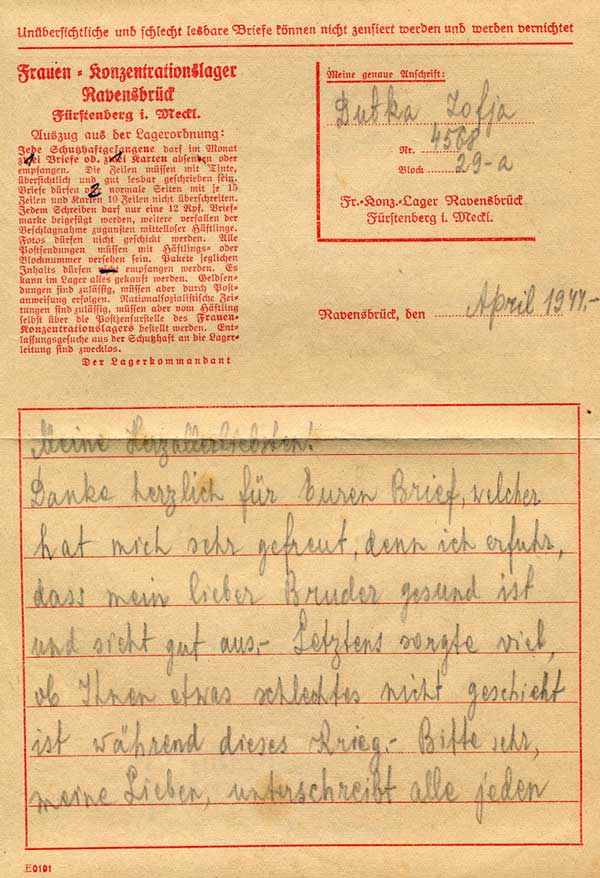 Unübersichtliche und schlecht lesbare Briefe können nicht zensiert werden und werden vernichtet
Frauen-Konzentrationslager
Ravensbrück
Fürstenberg i. Meckl.
Auszug aus der Lagerordnung:
Jede Schutzhaftgefangene darf im Monat
Briefe od. Karten absenden oder
empfangen. Die Zeilen müssen mit Tinte,
übersichtlich und gut lesbar geschrieben sein.
Briefe dürfen normale Seiten mit je 15
Zeilen und Karten 10 Zeilen nicht überschreiten.
Jedem Schreiben darf nur eine 12 Rpf. Brief-
marke beigefügt werden, weitere verfallen der
Beschlagnahme zugunsten mittelloser Häftlinge.
Fotos dürfen nicht geschickt werden. Alle
Postsendungen müssen mit Häftlings- oder
Blocknummer versehen sein. Pakete jeglichen
Inhalts dürfen empfangen werden. Es
kann im Lager alles gekauft werden. Geldsen-
dungen sind zulässig, müssen aber durch Post-
anweisung erfolgen. Nationalsozialistische Zei-
tungen sind zulässig, müssen aber vom Häftling
selbst über die Postzensurstelle des Frauen-
Konzentrationslagers bestellt werden. Ent-
lassungsgesuche aus der Schutzhaft an die Lager-
leitung sind zwecklos.
Der Lagerkommandant
Meine genaue Anschrift:
Dutka Zofja
Nr. 4568
Block 29-a
Fr.-Konz.-Lager Ravensbrück
Fürstenberg i. Meckl.
Ravensbrück, den April 1944.-
Meine Herzallerliebsten!
Danke herzlich für Euren Brief, welcher
hat mich sehr gefreut, denn ich erfuhr,
dass mein lieber Bruder gesund ist
und sieht gut aus.- Letztens sorgte viel,
ob Ihnen etwas schlechtes nicht geschieht
ist während dieses Krieg.- Bitte sehr,
meine Lieben, unterschreibt alle jeden
E0101